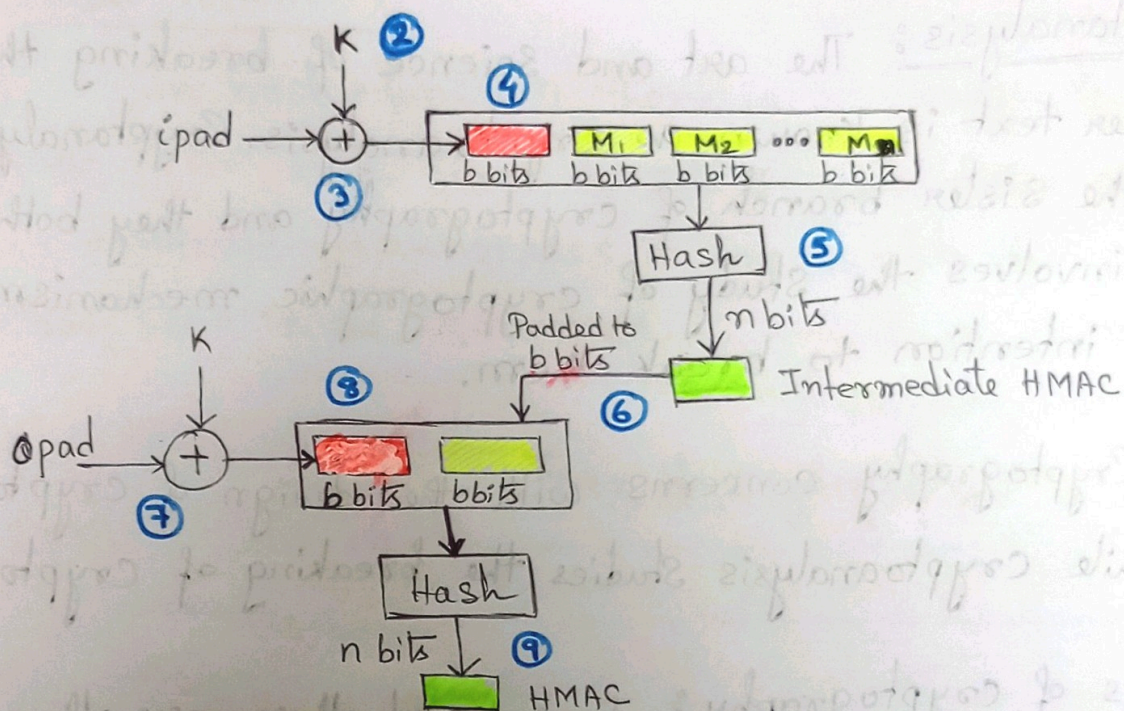 K ②
④
ipad
M1 M2 ... M
b bits b bits b bits b bits
③
Hash ⑤
n bits
Padded to
b bits
K
⑧ Intermediate HMAC
⑥
opad
b bits bbits
⑦
Hash
n bits ⑨
HMAC